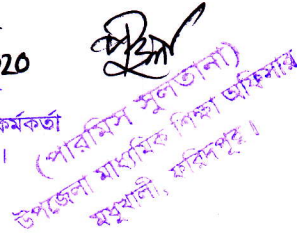 20
র্মকর্তা
।
(পারমিস সুলতানা)
উপজেলা মাধ্যমিক শিক্ষা অফিসার
মধুখালী, ফরিদপুর।